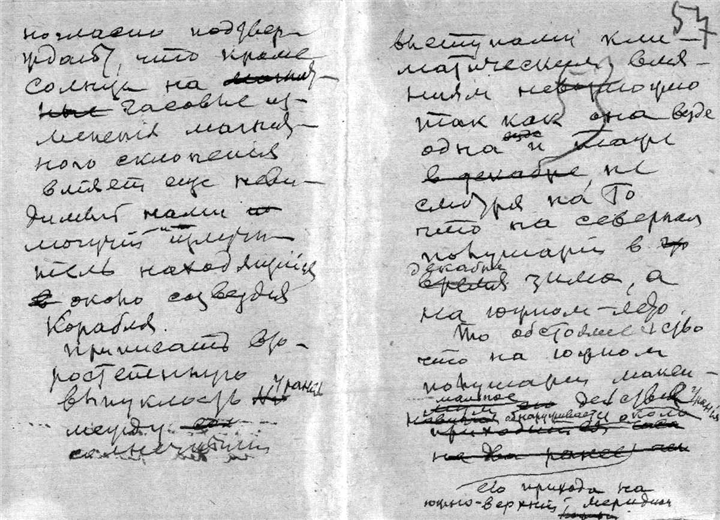 ногласно подтвер-
ждает, что кроме
солнца на магнит-
ные часовые из-
менения магнит-
ного склонения
влияет еще неви-
димый нами
могучий излучи-
тель находящийся
в около созвездия
Корабля.
Приписать
выпуклость Урании
между
солнечными
57
выступами кли-
матическим влия-
ниям невозможно
так как она везде
одна и таже
в декабре, не
смотря на то
что на северном
полушарии в
декабре
время зима, а
на южном-лето.
То обстоятельство
что на южном
полушарии макси-
мальное действие Урании
обнаруживается около
приходится
на два ранее
его прихода на
южно-верхний меридиан